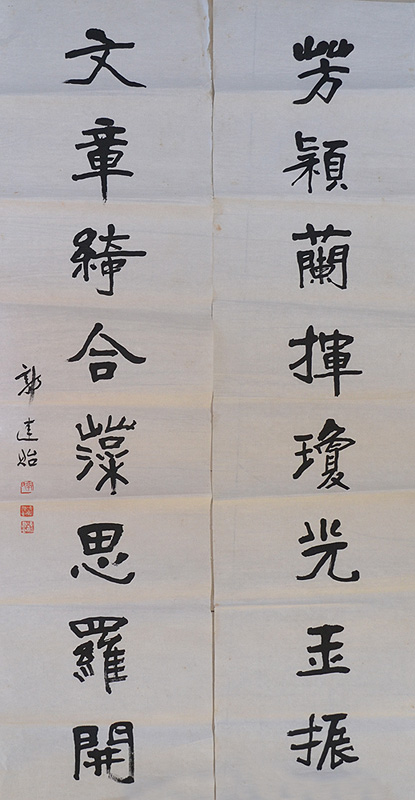 芳穎蘭揮瓊光玉振
文章綺合藻思羅開
郭建怡